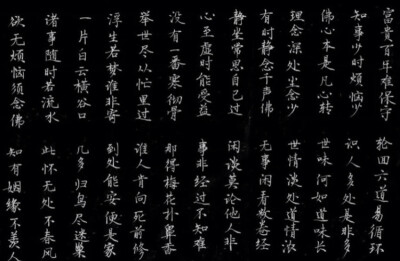 富貴百年难保守
轮回六道易循环
知事少时烦恼少
识人多处是非多
佛心本是凡心转
世味何如道味长
理念深处生念少
世情淡处道情浓
有时静念千声佛
无事闲看数卷经
静坐常思自己过
闲谈莫论他人非
心至虚时能受益
事非经过不知难
没有一番寒彻骨
那得梅花扑鼻香
举世尽从忙里过
谁人肯向死前修
浮生若梦谁非寄
到处能安便是家
一片白云横谷口
几多归鸟尽迷巢
诸事随时若流水
此怀无处不春风
欲无烦恼须念佛
知有姻緣不羡人